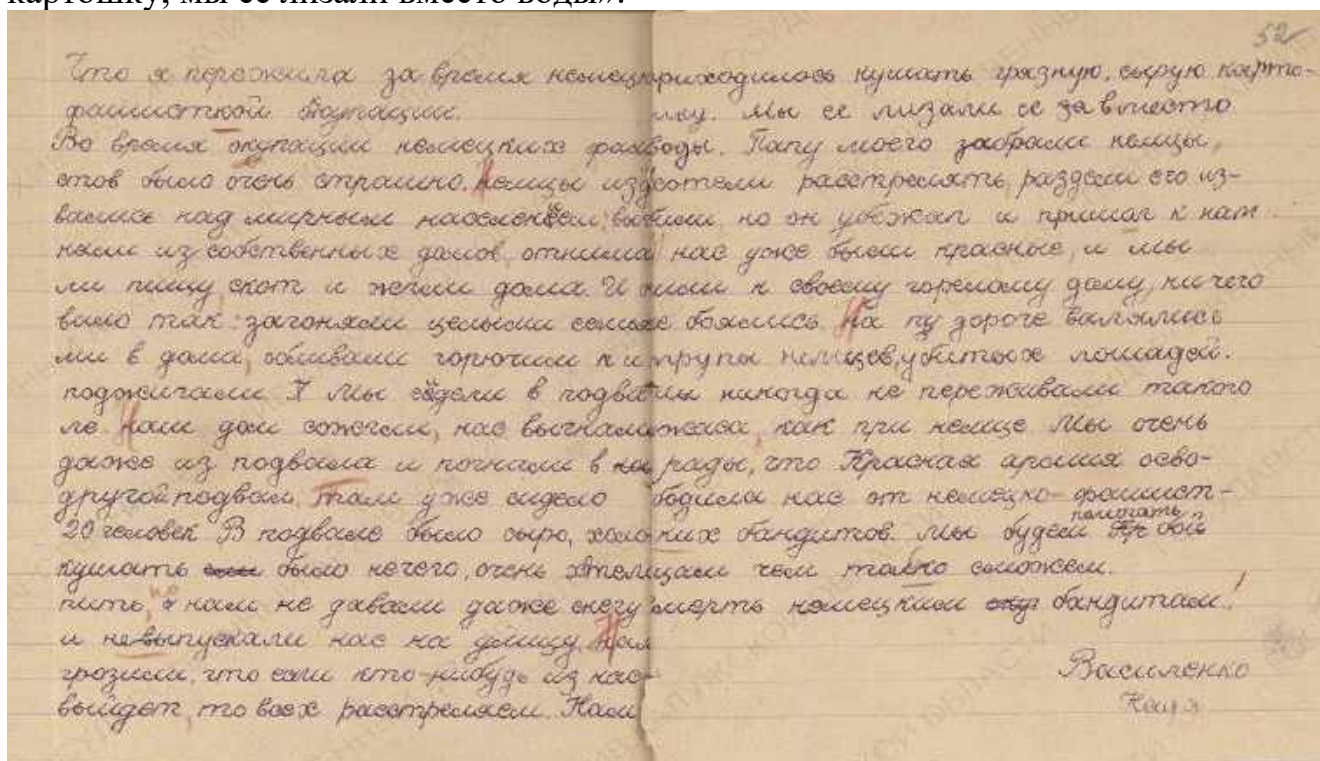 картошку, мы ее лизали вместо воды».
52
Что я пережила за время немецко
фашисткой окупации.
Во время окупации немецких фаши
стов было очень страшно. Немцы изде
вались над мирным населением: выго
няли из собственных домов, отнима
ли пищу, скот и жгли дома. И
было так: загоняли целыми семья
ми в дома, обливали горючим и
поджигали. Мы сидели в подва
ле. Наш дом сожгли, нас выгнали
даже из подвала и погнали в
другой подвал, там уже сидело
20 человек. В подвале было сыро, холо
кушать было нечего, очень хотели
пить, но нам не давали даже снегу
и не выпускали нас на улицу. Нам
грозили, что если кто-нибудь из нас
выйдет, то всех расстреляем. Нам
приходилось кушать грязную, сырую карто-
шку. Мы ее лизали ее за вместо
воды. Папу моего забрали немцы,
хотели расстрелять, раздели его из-
били, но он убежал и пришол к нам.
У нас уже были красные, и мы
пошли к своему горелому дому, ничего
не боялись. На дороге валялись
трупы немцев, убитых лошадей.
Мы никогда не переживали такого
ужаса, как при немце. Мы очень
рады, что Красная армия осво-
бодила нас от немецко-фашист-
ких бандитов. Мы будем помогать бой
цам чем только сможем.
Смерть немецким бандитам!
Василенко